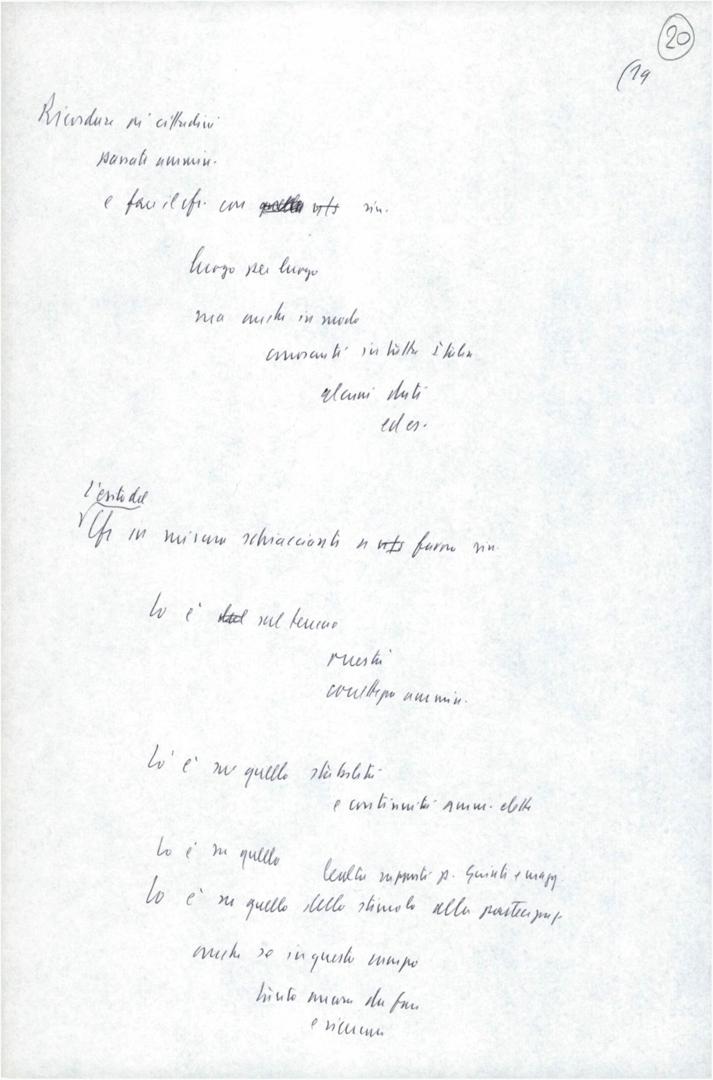 20
(19
Ricordare ai cittadini
passate ammin.
e fare il cfr. con quella sin.
luogo per luogo
ma anche in modo
in tutta Italia
alcuni dati
ed es.
l'esito del
Cfr in misura schiacciante a favore sin.
Lo è sul terreno
onestà
correttezza ammin.
Lo è su quello stabilità
e continuità amm. elette
Lo è su quello lealtà rapporti p. Giunte e magg.
Lo è su quello dello stimolo alla partecipaz.
anche se in questo campo
tanto ancora da fare
e ricercare